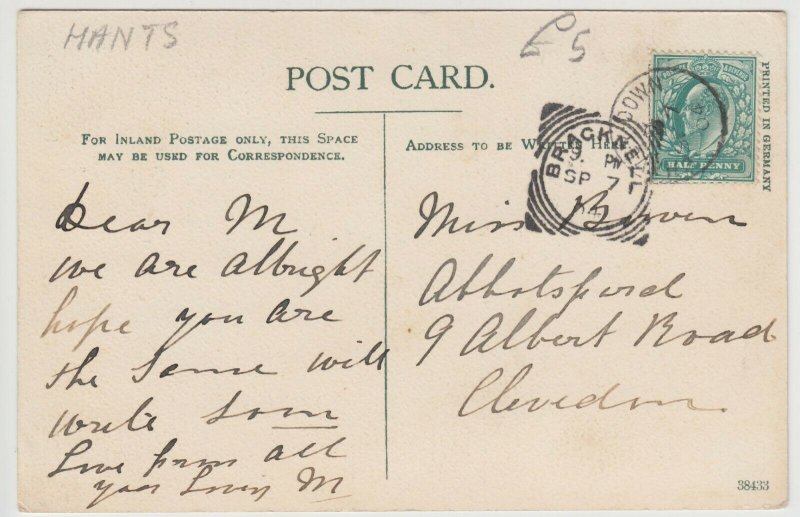 HANTS
£5
POST CARD.
FOR INLAND POSTAGE ONLY, THIS SPACE
MAY BE USED FOR CORRESPONDENCE.
ADDRESS TO BE WRITTEN HERE.
PRINTED IN GERMANY
HALF PENNY
BRACKNELL
9. PM
SP 7
04
Dear M
we are albright
hope you are
the same will
write soon
Love from all
your Loving M
Miss Bowen
Abbotsford
9 Albert Road
Clevedon.
38433